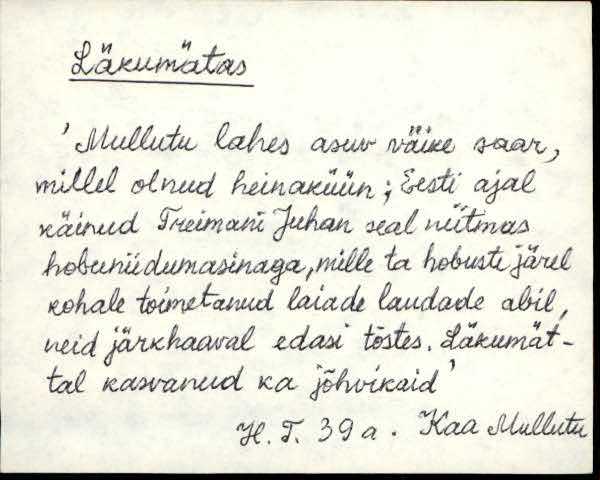 Läkumätas
'Mullutu lahes asuv väike saar,
millel olnud heinaküün; Eesti ajal
käinud Treimani Juhan seal niitmas
hobuniidumasinaga, mille ta hobuste järel
kohale toimetanud laiade laudade abil,
neid järkhaaval edasi tõstes. Läkumät-
tal kasvanud ka jõhvikaid'
H. T. 39 a. Kaa Mullutu